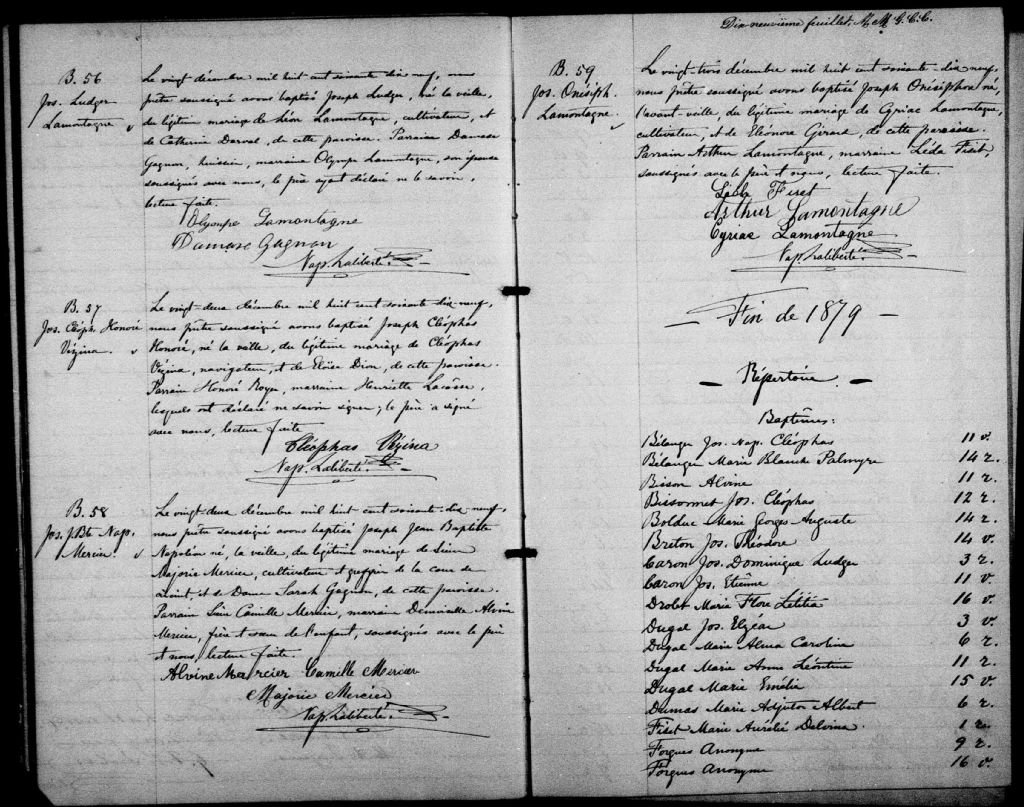 B. 56
Jos. Ludger
Lamontagne
Le vingt décembre mil huit cent soixante dix neuf, nous
prêtre soussigné avons baptisé Joseph Ludger, né la veille,
du légitime mariage de Léon Lamontagne, cultivateur, et
de Catherine Darval, de cette paroisse. Parrain Damase
Gagnon, huissier, marraine Olympe Lamontagne, son épouse
soussignés avec nous, le père ayant déclaré ne le savoir,
lecture faite.
Olympe Lamontagne
Damase Gagnon
Nap. Laliberté. Ptre
B. 57
Jos. Cléoph. Honoré
Vézina.
Le vingt-deux décembre mil huit cent soixante dix neuf,
nous prêtre soussigné avons baptisé Joseph Cléophas
Honoré, né la veille, du légitime mariage de Cléophas
Vézina, navigateur, et de Eloïse Dion, de cette paroisse.
Parrain Honoré Royer, marraine Henriette Lacasse,
lesquels ont déclaré ne savoir signer; le père a signé
avec nous, lecture faite
Cléophas Vézina
Nap. Laliberté. Ptre
B. 58
Jos. J. Bte Nap.
Mercier.
Le vingt deux décembre mil huit cent soixante dix-neuf,
nous prêtre soussigné avons baptisé Joseph Jean Baptiste
Napoléon né, la veille, du légitime mariage de Sieur
Majoric Mercier, cultivateur et greffier de la cour de
circuit et de Dame Sarah Gagnon, de cette paroisse.
Parrain Sieur Camille Mercier, marraine Demoiselle Alvine
Mercier, frère et sœur de l'enfant, soussignés avec le père
et nous, lecture faite
Alvine Mercier Camille Mercier
Majoric Mercier
Nap. Laliberté. Ptre
Dix-neuvième feuillet, G. C. C.
B. 59
Jos. Onésiph.
Lamontagne.
Le vingt-trois décembre mil huit cent soixante dix neuf,
nous prêtre soussigné avons baptisé Joseph Onésiphore né,
l'avant-veille, du légitime mariage de Cyriac Lamontagne,
cultivateur, et de Eléonore Girard, de cette paroisse.
Parrain Arthur Lamontagne, marraine Léda Fiset,
soussignés avec le père et nous, lecture faite.
Léda Fiset
Arthur Lamontagne
Cyriac Lamontagne
Nap. Laliberté. Ptre
— Fin de 1879 —
— Répertoire. —
Baptêmes:
Bélanger Jos. Nap. Cléophas 11 v.
Bélanger Marie Blanche Palmyre 14 r.
Bison Alvine 11 r.
Bissonnet Jos. Cléophas 12 r.
Bolduc Marie Georges Auguste 14 r.
Breton Jos. Théodore 14 v.
Caron Jos. Dominique Ludger 3 r.
Caron Jos. Etienne 11 v.
Drolet Marie Flore Létitia 16 v.
Dugal Jos. Elzéar 3 v.
Dugal Marie Alma Caroline 6 r.
Dugal Marie Anne Léontine 11 r.
Dugal Marie Emélie 15 v.
Dumas Marie Adjutor Albert 6 r.
Fiset Marie Aurélie Delvina 1 r.
Forgues Anonyme 9 r.
Forgues Anonyme 16 v.